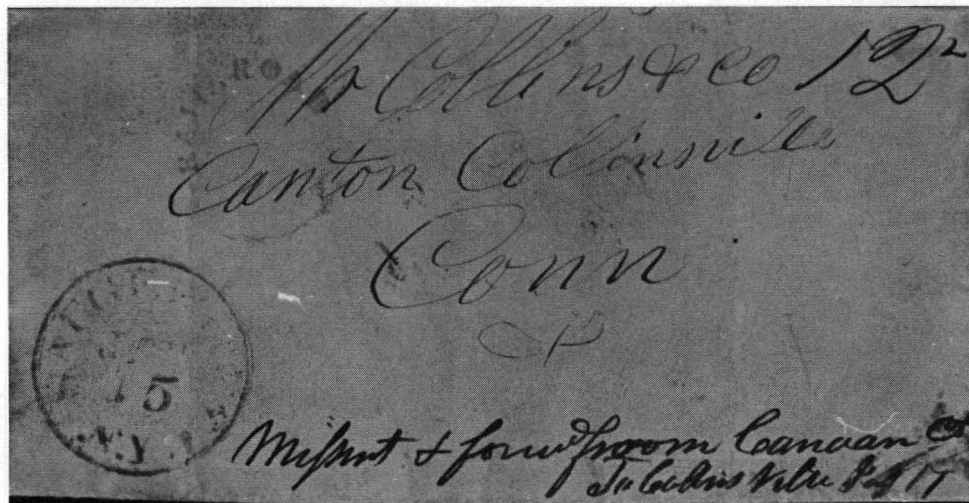 Collins & co 12½
Canton Collinsville
Conn
5
N.Y.
Missent & forwd from Canaan Ct
To Collinsville 17